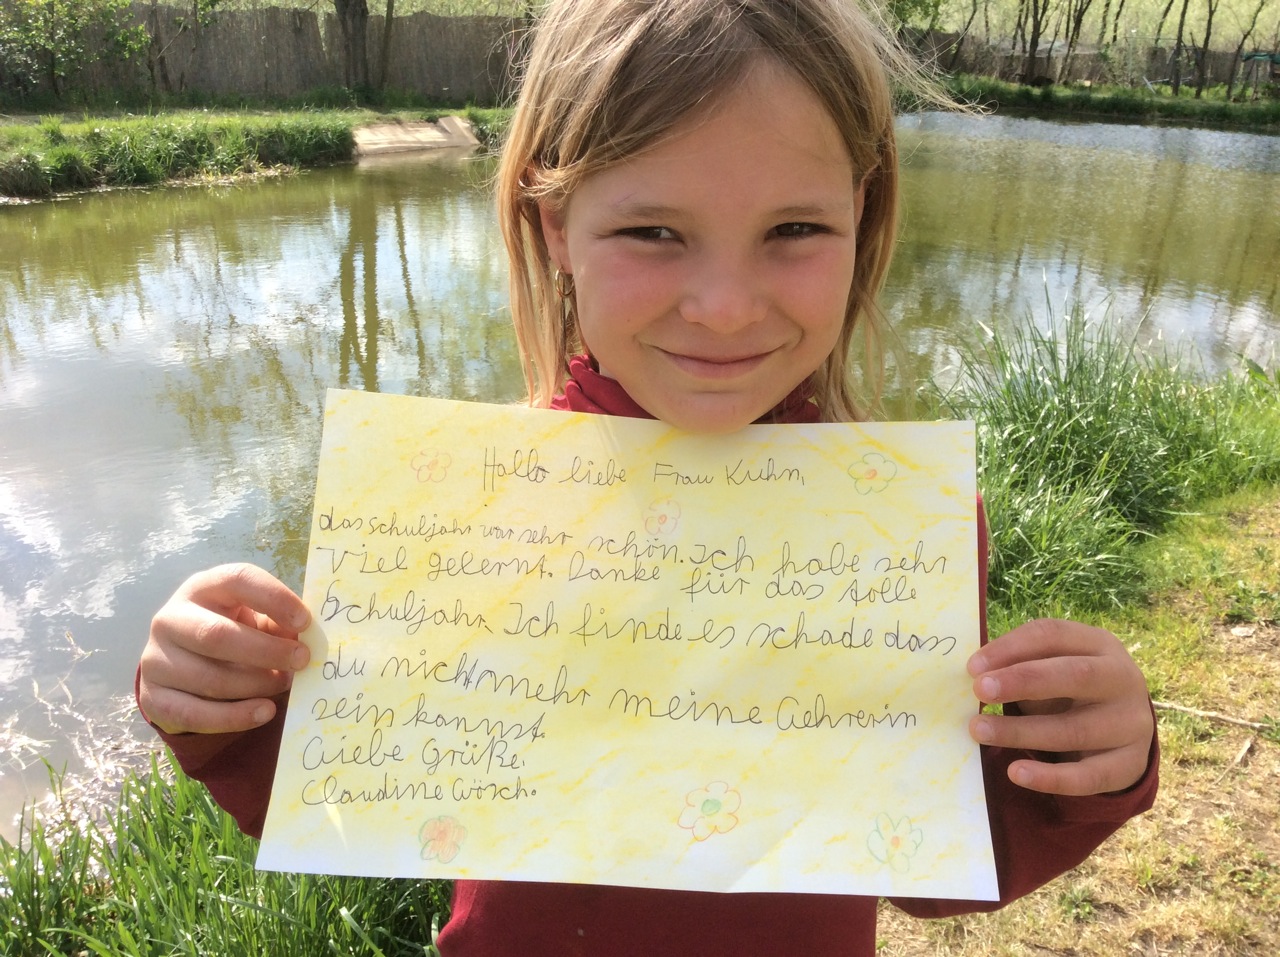 Hallo liebe Frau Kuhn,
das schuljahr war sehr schön. Ich habe sehr
viel gelernt. Danke für das tolle
Schuljahr. Ich finde es schade dass
du nicht mehr meine Lehrerin
sein kannst.
Liebe Grüße.
Claudine Wösch.